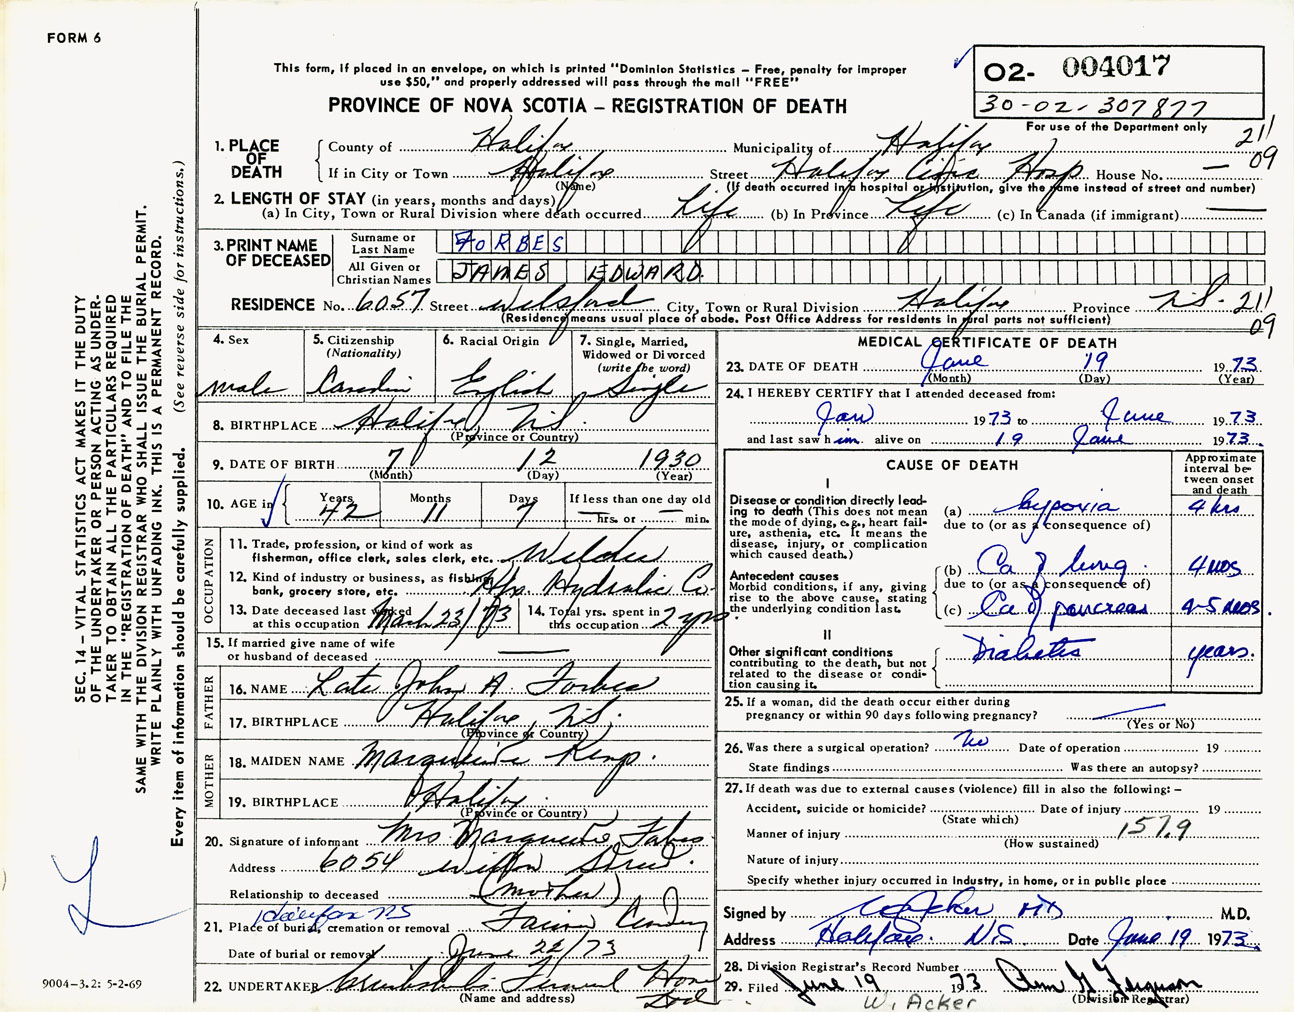 FORM 6
This form, if placed in an envelope, on which is printed "Dominion Statistics – Free, penalty for improper
use $50," and properly addressed will pass through the mail "FREE"
PROVINCE OF NOVA SCOTIA – REGISTRATION OF DEATH
02- 004017
30-02-307877
For use of the Department only
211
09
1. PLACE OF DEATH
County of Halifax Municipality of Halifax
If in City or Town Halifax Street Halifax Civic Hosp House No. —
(Name) (If death occurred in a hospital or institution, give the name instead of street and number)
2. LENGTH OF STAY (in years, months and days)
(a) In City, Town or Rural Division where death occurred Life (b) In Province Life (c) In Canada (if immigrant) —
3. PRINT NAME OF DECEASED
Surname or Last Name FORBES
All Given or Christian Names JAMES EDWARD
RESIDENCE No. 6057 Street City, Town or Rural Division Halifax Province N.S. 211
(Residence means usual place of abode. Post Office Address for residents in rural parts not sufficient) 09
4. Sex
male
5. Citizenship
(Nationality)
6. Racial Origin
English
7. Single, Married,
Widowed or Divorced
(write the word)
Single
8. BIRTHPLACE Halifax N.S.
(Province or Country)
9. DATE OF BIRTH 7 12 1930
(Month) (Day) (Year)
10. AGE in
Years 42
Months 11
Days 7
If less than one day old
— hrs. or — min.
OCCUPATION
11. Trade, profession, or kind of work as
fisherman, office clerk, sales clerk, etc. Welder
12. Kind of industry or business, as fishing,
bank, grocery store, etc. Hfx. Hydralic Co.
13. Date deceased last worked
at this occupation March 23/73
14. Total yrs. spent in
this occupation 2 yrs.
15. If married give name of wife
or husband of deceased —
FATHER
16. NAME Late John A. Forbes
17. BIRTHPLACE Halifax, N.S.
(Province or Country)
MOTHER
18. MAIDEN NAME Marguerite Kemp.
19. BIRTHPLACE Halifax.
(Province or Country)
20. Signature of informant Mrs Marguerite Forbes
Address 6054 Street.
Relationship to deceased (mother)
Halifax NS
21. Place of burial, cremation or removal
Date of burial or removal June 22/73
22. UNDERTAKER Funeral Home
(Name and address)
MEDICAL CERTIFICATE OF DEATH
23. DATE OF DEATH June 19 1973
(Month) (Day) (Year)
24. I HEREBY CERTIFY that I attended deceased from:
Jan 1973 to June 1973
and last saw him alive on 19 June 1973.
CAUSE OF DEATH
Approximate
interval be-
tween onset
and death
I
Disease or condition directly lead-
ing to death (This does not mean
the mode of dying, e.g., heart fail-
ure, asthenia, etc. It means the
disease, injury, or complication
which caused death.)
(a) hypoxia 4 hrs
due to (or as a consequence of)
Antecedent causes
Morbid conditions, if any, giving
rise to the above cause, stating
the underlying condition last.
(b) Ca of lung. 4 mos
due to (or as a consequence of)
(c) Ca of pancreas 4-5 mos.
II
Other significant conditions
contributing to the death, but not
related to the disease or condi-
tion causing it.
Diabetes years.
25. If a woman, did the death occur either during
pregnancy or within 90 days following pregnancy? —
(Yes or No)
26. Was there a surgical operation? No Date of operation 19
State findings Was there an autopsy?
27. If death was due to external causes (violence) fill in also the following: –
Accident, suicide or homicide? Date of injury 19
(State which)
Manner of injury 157.9
(How sustained)
Nature of injury
Specify whether injury occurred in industry, in home, or in public place
Signed by Acker MD M.D.
Address Halifax. N.S. Date June 19 1973.
28. Division Registrar's Record Number
29. Filed June 19 1973 Ferguson
(Division Registrar)
W. Acker
SEC. 14 – VITAL STATISTICS ACT MAKES IT THE DUTY
OF THE UNDERTAKER OR PERSON ACTING AS UNDER-
TAKER TO OBTAIN ALL THE PARTICULARS REQUIRED
IN THE "REGISTRATION OF DEATH" AND TO FILE THE
SAME WITH THE DIVISION REGISTRAR WHO SHALL ISSUE THE BURIAL PERMIT.
WRITE PLAINLY WITH UNFADING INK. THIS IS A PERMANENT RECORD.
Every item of information should be carefully supplied. (See reverse side for instructions.)
9004-3.2: 5-2-69